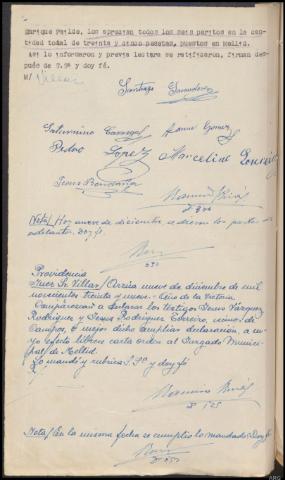 Enrique Pardo, los aprecian todos los seis peritos en la can-
tidad total de treinta y cinco pesetas, puestos en Mellid.
Asi lo informaron y previa lectura se ratificaron, firman des-
pués de S.Sª y doy fé.
M/ Villar
Santiago
Saturnino Jaime Gomez
Pedro Lopez Marcelino
Jesus
Nota/ Hoy nueve de diciembre, se dieron los partes de
adelanto. Doy fe.
Providencia
Juez Sr Villar/ Arzúa nueve de diciembre de mil
novecientos treinta y nueve.- Año de la Victoria
Comparezcan a declarar los testigos Jesus Vázquez
Rodriguez y Jesus Rodriguez Ferreiro, vecinos de
Campos, o mejor dicho ampliar declaración, a cu-
yo efecto librese carta orden al Juzgado Munici-
pal de Mellid.
Lo mandó y rubrica S.Sª doy fe
Nota/ En la misma fecha se cumplió lo mandado. Doy fe